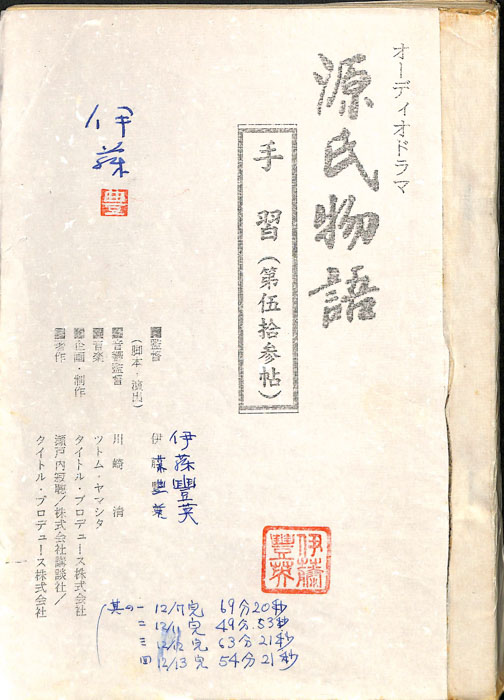 オーディオドラマ
源氏物語
手習（第伍拾参帖）
伊藤
豊
監督
（脚本・演出）
伊藤豊英
伊藤豊英
音響監督
川崎清
音楽
ツトム・ヤマシタ
企画・制作
タイトル・プロデュース株式会社
著作
瀬戸内寂聴／株式会社講談社／
タイトル・プロデュース株式会社
伊藤豊英
其の一 12/7完 69分20秒
二 12/11完 49分53秒
三 12/12完 63分21秒
四 12/13完 54分21秒